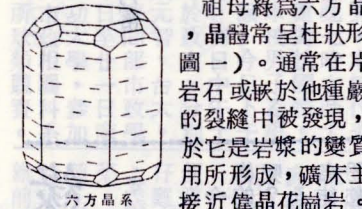 祖母綠為六方晶
，晶體常呈柱狀形
圖一）。通常在片
岩石或嵌於他種巖
的裂縫中被發現，
於它是岩漿的變質
用所形成，礦床主
接近偉晶花崗岩，
六方晶系